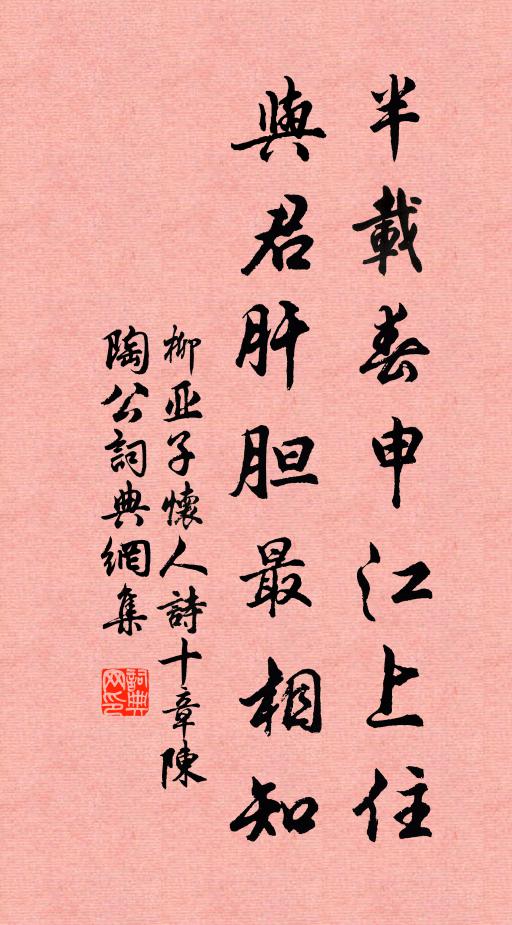 半載春申江上住
與君肝胆最相知
柳亚子懷人詩十章陳
陶公詞典網集
詞典网印